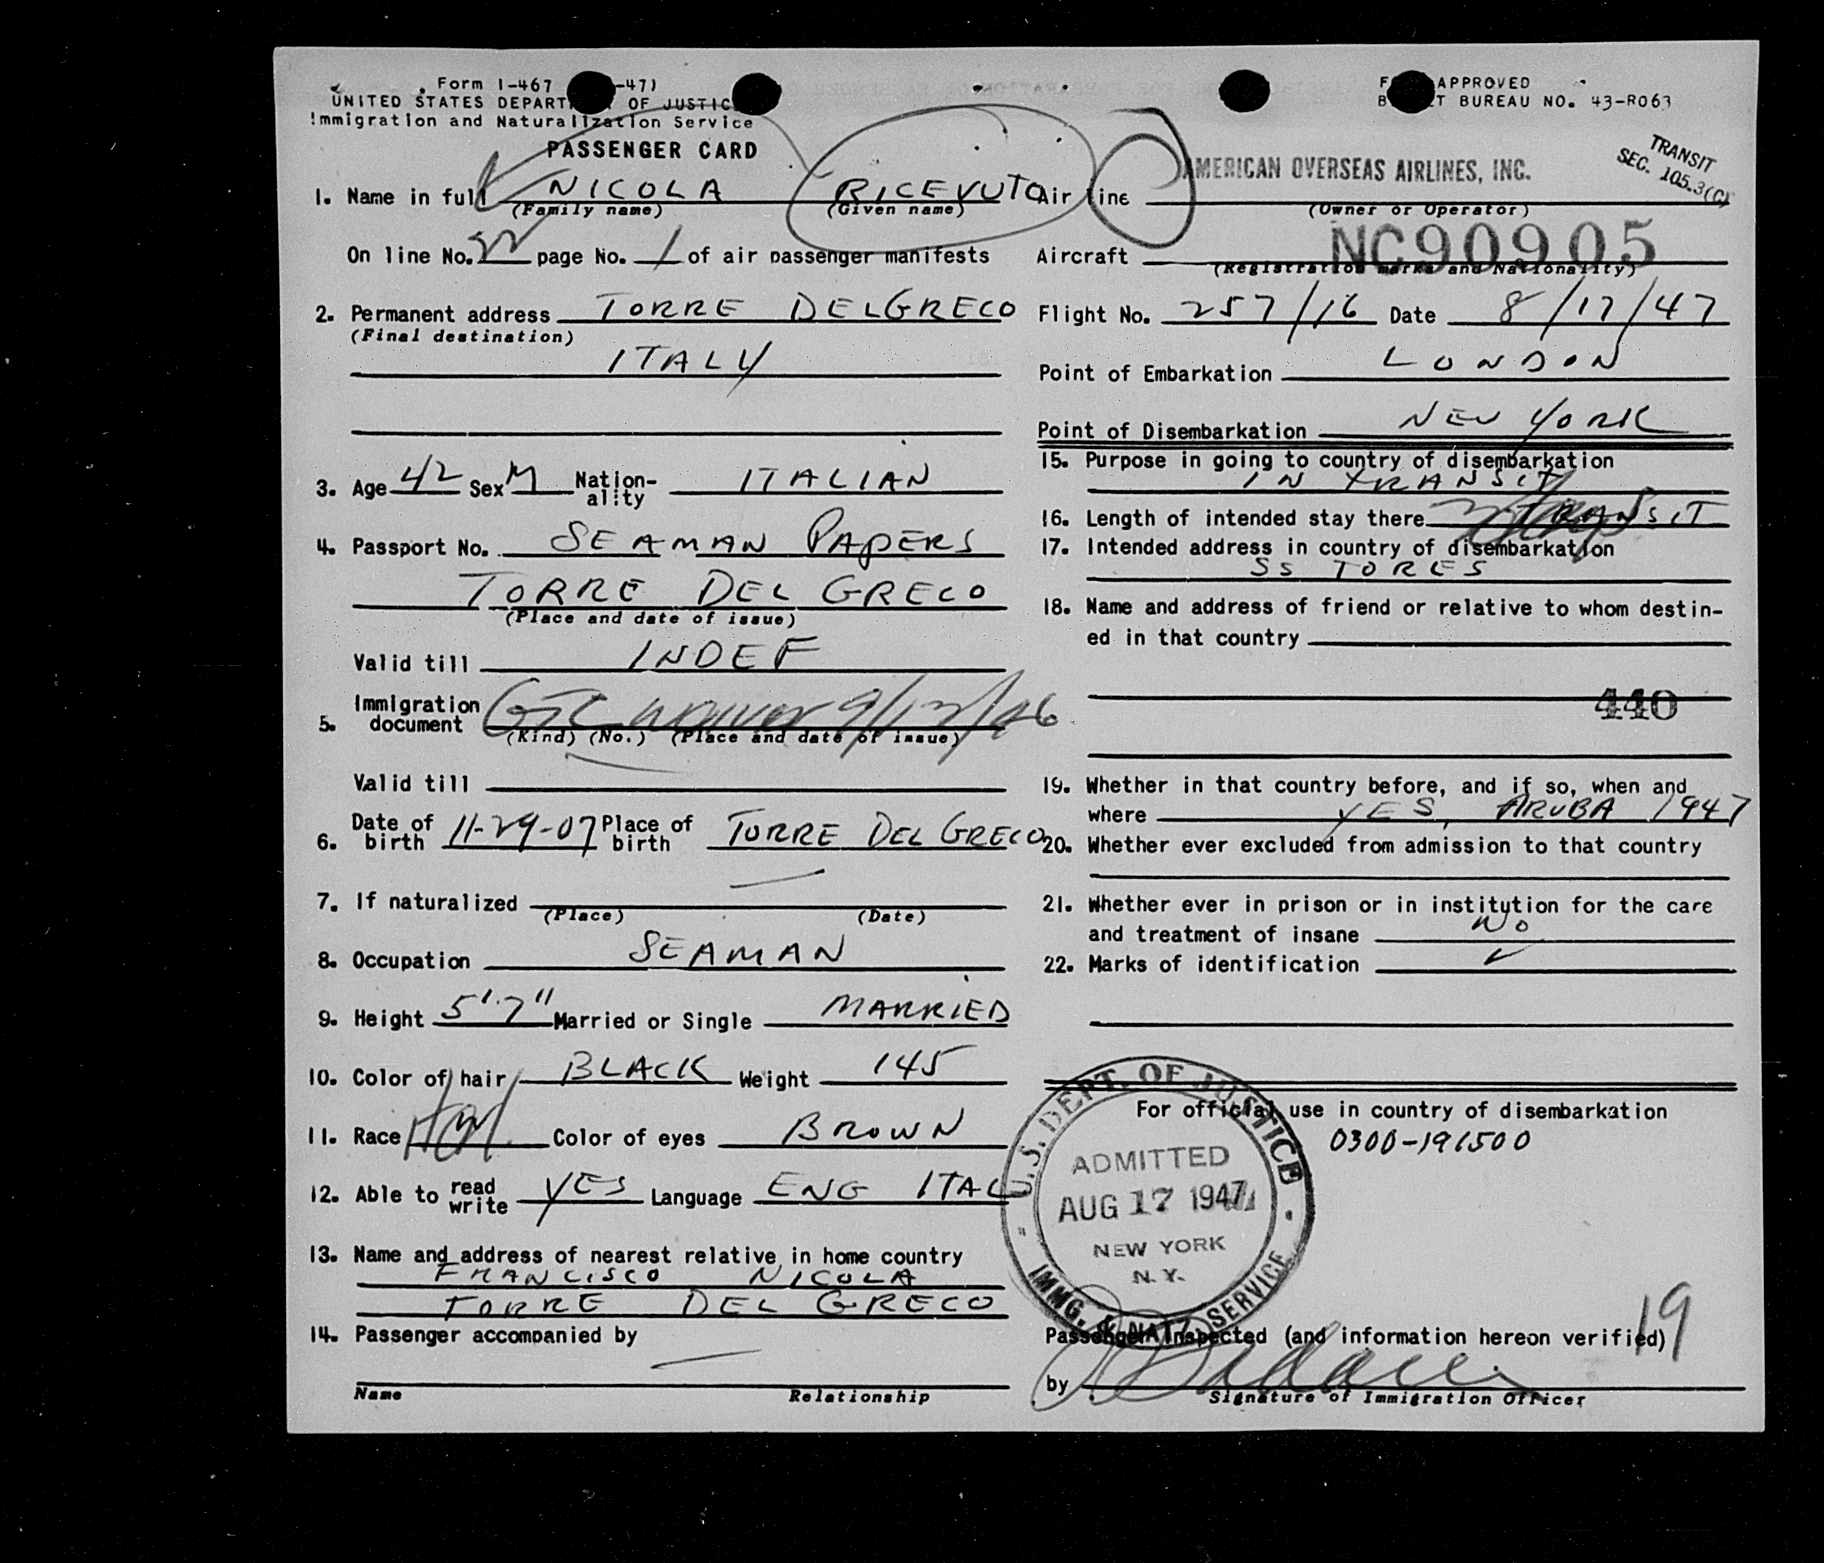 Form I-467 -47)
UNITED STATES DEPART OF JUSTIC
Immigration and Naturalization Service
PASSENGER CARD
1. Name in full NICOLA RICEVUTO
(Family name) (Given name)
On line No. 22 page No. 1 of air passenger manifests
2. Permanent address TORRE DELGRECO
(Final destination)
ITALY
3. Age 42 Sex M Nation-ality ITALIAN
4. Passport No. SEAMAN PAPERS
TORRE DEL GRECO
(Place and date of issue)
Valid till INDEF
5. Immigration document waiver 9/12/46
(Kind) (No.) (Place and date of issue)
Valid till
6. Date of birth 11-29-07 Place of birth TORRE DEL GRECO
7. If naturalized —
(Place) (Date)
8. Occupation SEAMAN
9. Height 5'7" Married or Single MARRIED
10. Color of hair BLACK Weight 145
11. Race Color of eyes BROWN
12. Able to read write YES Language ENG ITAL
13. Name and address of nearest relative in home country
FRANCISCO NICOLA
TORRE DEL GRECO
14. Passenger accompanied by
—
Name Relationship
APPROVED
T BUREAU NO. 43-R063
TRANSIT
SEC. 105.3(C)
Air line AMERICAN OVERSEAS AIRLINES, INC.
(Owner or Operator)
Aircraft NC90905
(Registration marks and Nationality)
Flight No. 257/16 Date 8/17/47
Point of Embarkation LONDON
Point of Disembarkation NEW YORK
15. Purpose in going to country of disembarkation
IN TRANSIT
16. Length of intended stay there TRANSIT
17. Intended address in country of disembarkation
SS TORES
18. Name and address of friend or relative to whom destin-
ed in that country
440
19. Whether in that country before, and if so, when and
where YES, ARUBA 1947
20. Whether ever excluded from admission to that country
21. Whether ever in prison or in institution for the care
and treatment of insane NO
22. Marks of identification ✓
For official use in country of disembarkation
0300-191500
U.S. DEPT. OF JUSTICE
ADMITTED
AUG 17 1947
NEW YORK
N.Y.
IMMG. & NATZ. SERVICE
19
Passenger Inspected (and information hereon verified)
by
Signature of Immigration Officer